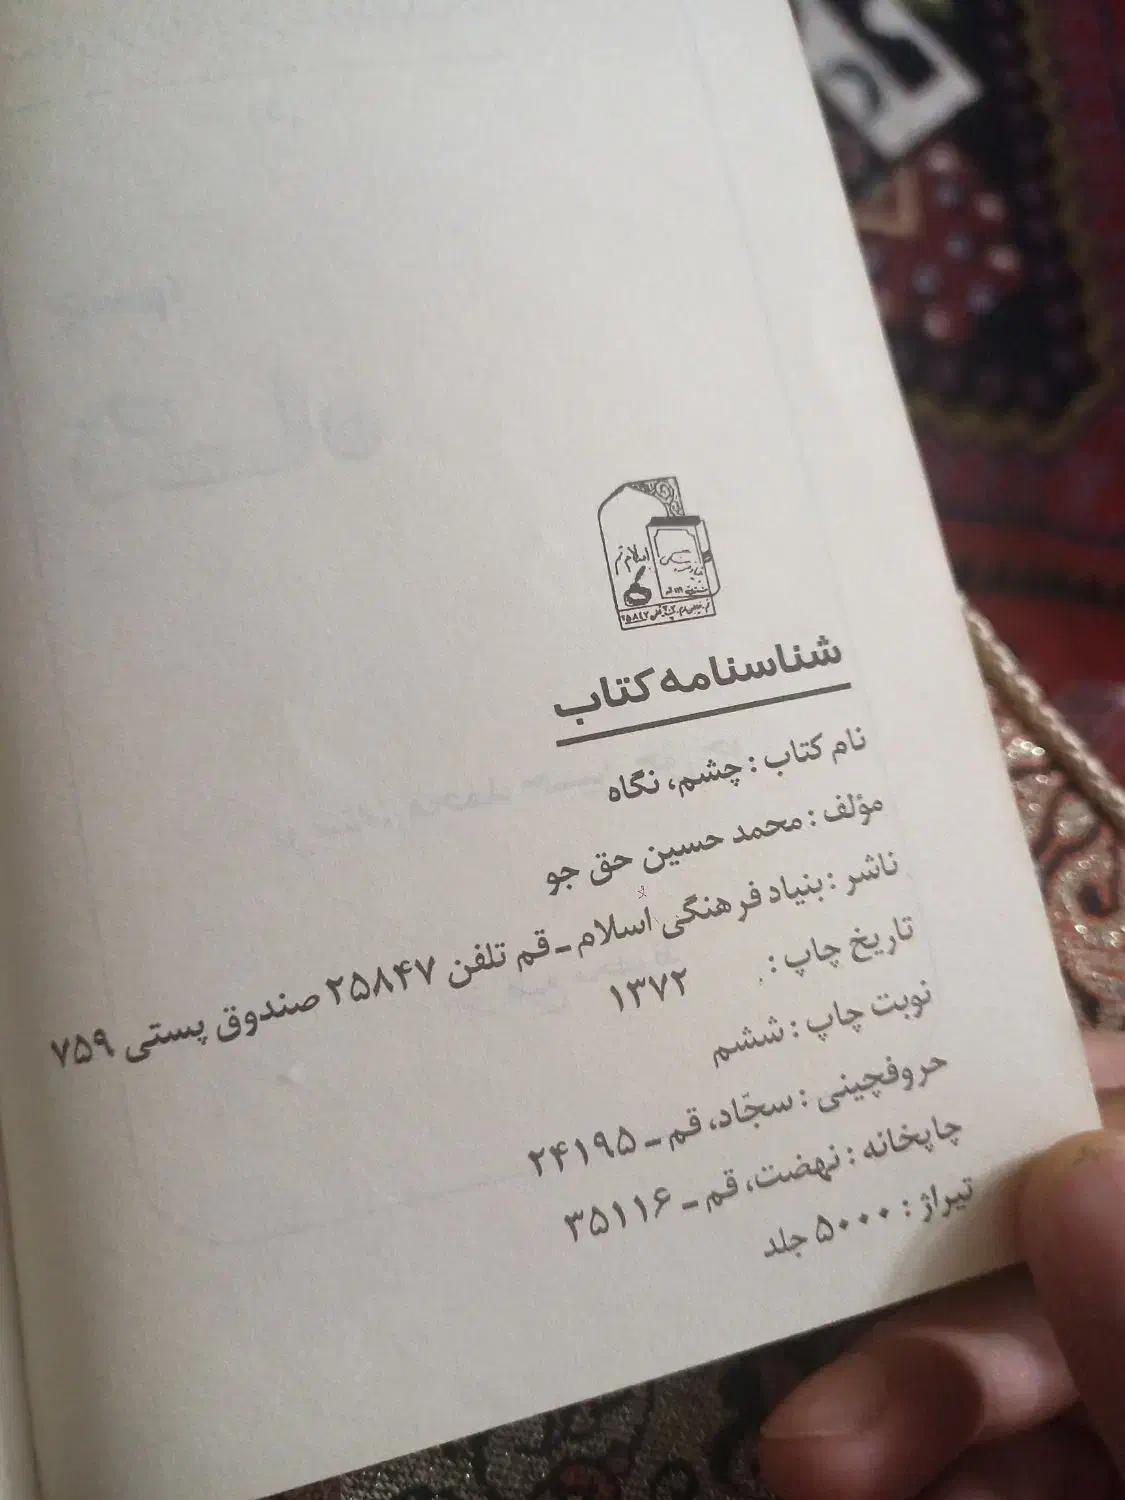 اسلام قم
شناسنامه کتاب
نام کتاب : چشم، نگاه
مؤلف : محمد حسین حق جو
ناشر : بنیاد فرهنگی اسلام ـ قم تلفن ۲۵۸۴۷ صندوق پستی ۷۵۹
تاریخ چاپ : ۱۳۷۲
نوبت چاپ : ششم
حروفچینی : سجّاد، قم ـ ۲۴۱۹۵
چاپخانه : نهضت، قم ـ ۳۵۱۱۶
تیراژ : ۵۰۰۰ جلد